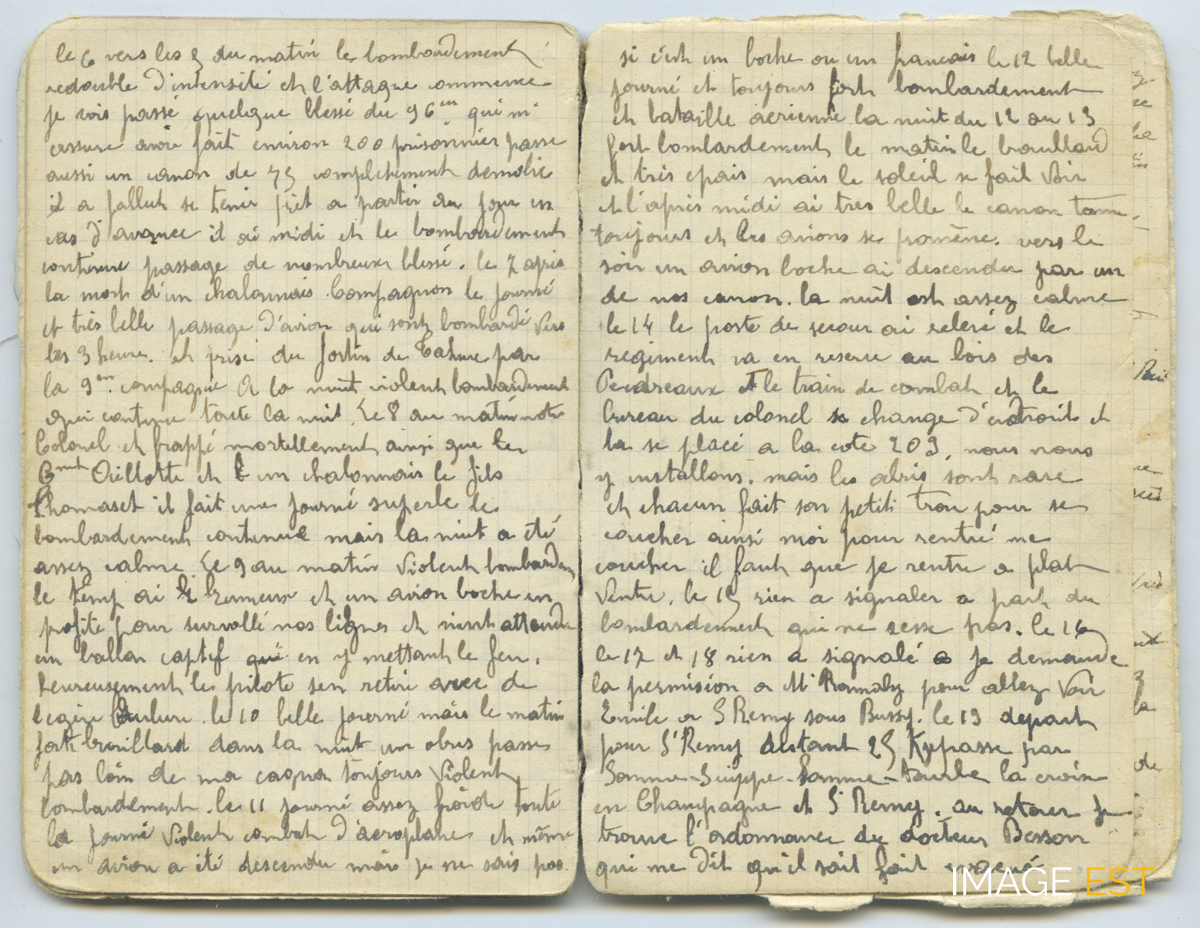 le 6 vers les 5 du matin le bombardement
redouble d'intensité et l'attaque commence
je vois passé quelque blessé du 96em qui m
assure avoir fait environ 200 prisonnier passe
aussi un canon de 75 completement demolie
il a fallut se tenir pret a partir au jour en
cas d'avance il ai midi et le bombardement
continue passage de nombreux blessé. le 7 apris
la mort d'un chalonnais Compagnon le journé
et très belle passage d'avion qui sont bombardé vers
les 3 heure. et prise du fortin de Tahure par
la 9em compagnie a la nuit violent bombardement
qui continue toute la nuit. Le 8 au matin notre
Colonel et frappé mortellement ainsi que le
Cmnt Oillotte et un chalonnais le fils
Thomaset il fait une journé superbe le
bombardement continue mais la nuit a été
assez calme Le 9 au matin violent bombardem
le temp ai brumeux et un avion boche en
profite pour survollé nos lignes et vient attendre
un ballon captif en y mettant le feu.
heureusement le pilote sen retire avec de
legère brulure. le 10 belle journé mais le matin
fort brouillard dans la nuit un obus passe
pas loin de ma cagna toujours violent
bombardement. le 11 journé assez froide toute
la journé violent combat d'aeroplane et même
un avion a été descendu mais je ne sais pas
si c'est un boche ou un francais le 12 belle
journé et toujours fort bombardement
et bataille aerienne la nuit du 12 au 13
fort bombardement le matin le brouillard
et tres epais mais le soleil se fait voir
et l'après midi ai tres belle le canon tonne
toujours et les avions se promène. vers le
soir un avion boche ai descendu par un
de nos canon. la nuit est assez calme
le 14 le poste de secour ai relevé et le
regiment va en reserve au bois des
Perdreaux le train de combat et le
bureau du colonel change d'endroit et
la se placé a la cote 203, nous nous
y installons. mais les abris sont rare
et chacun fait son petit trou pour se
coucher ainsi moi pour rentré me
coucher il faut que je rentre a plat
ventre. le 15 rien a signaler a part du
bombardement qui ne sesse pas. le 16
le 17 et 18 rien a signalé je demande
la permision a Mr pour allez voir
Emile a St Remy sous Bussy. le 19 depart
pour St Remy distant 25 K passe par
Somme-Suippe-Somme-Tourbe la croix
en Champagne et St Remy. au retour je
trouve l'ordonnance du docteur Besson
qui me dit qu'il sait fait
IMAGE EST